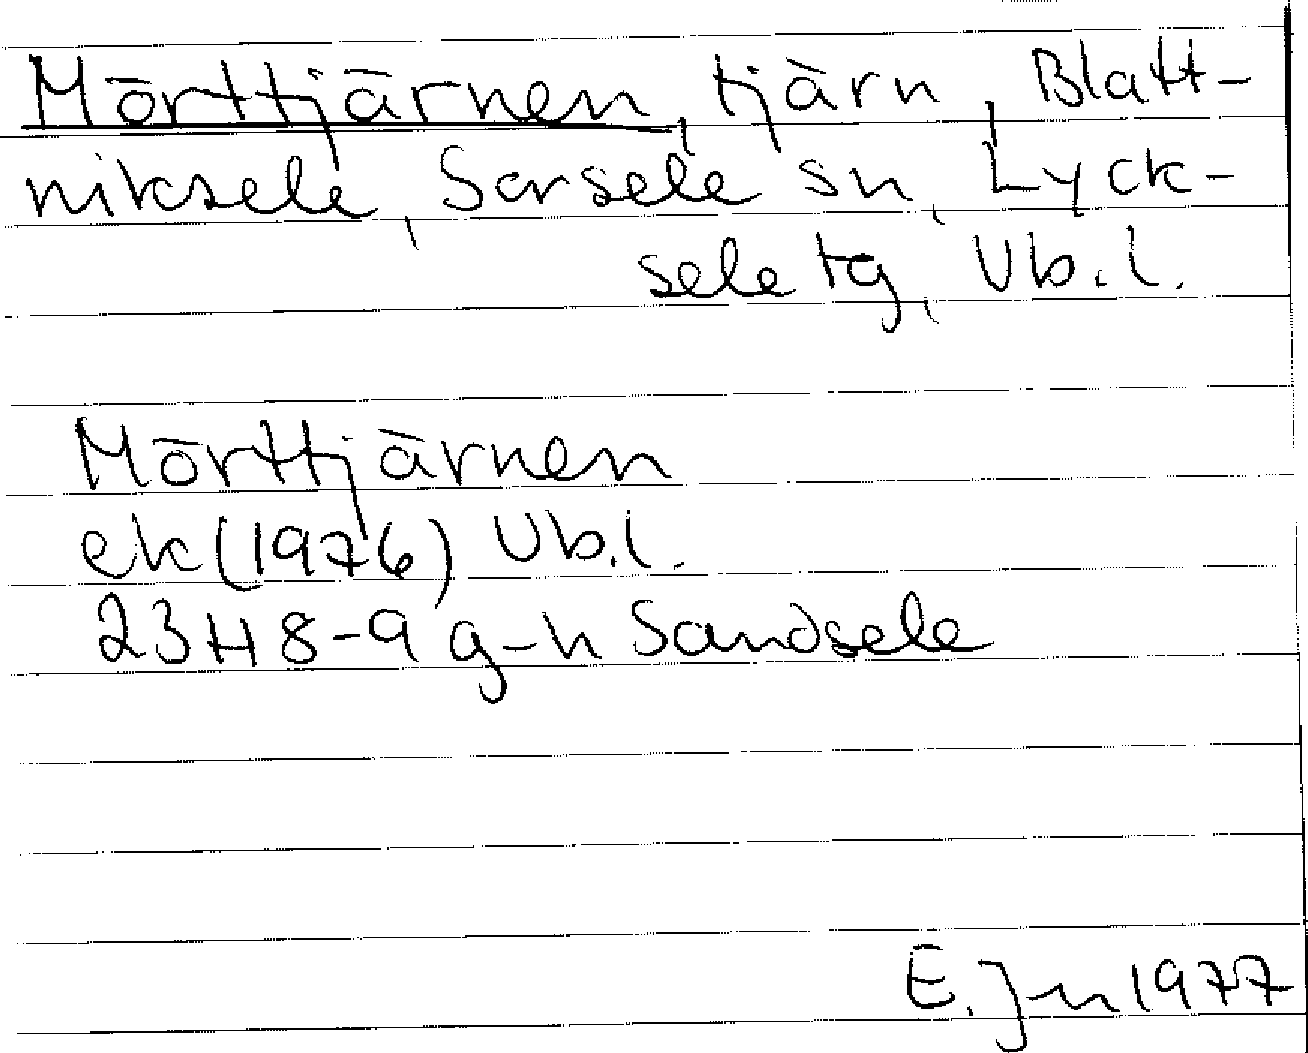 Mörttjärnen, tjärn, Blatt-
niksele, Sorsele sn, Lyck-
sele tg, Vb.l.
Mörttjärnen
ek (1976) Vb.l.
23H 8-9 g-h Sandsele
E. Jn 1977